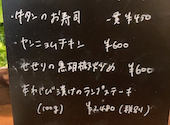 ・牛タンのお寿司 一貫 ¥450
・ヤンニョムチキン ¥600
・せせりの黒胡椒炒め ¥600
・わさび漬けのランプステーキ
(100g) ¥2,480 (税別)